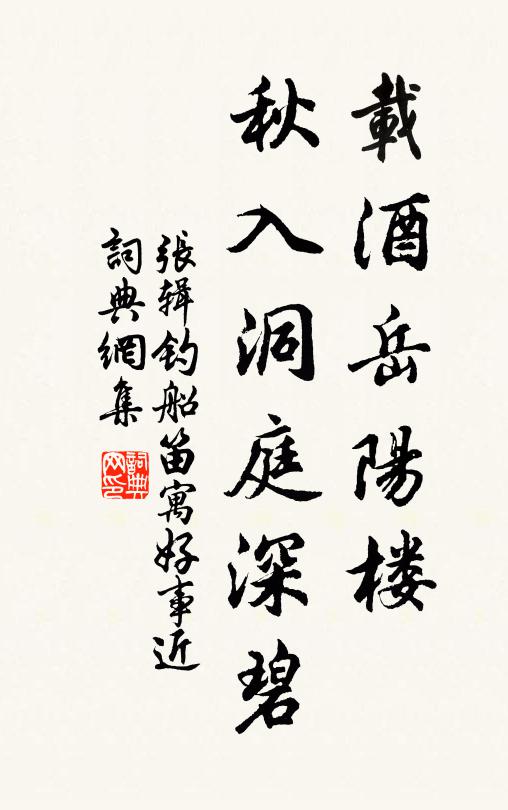 載酒岳陽楼
秋入洞庭深碧
張辑钓船笛寓好事近
詞典網集
詞典
网印